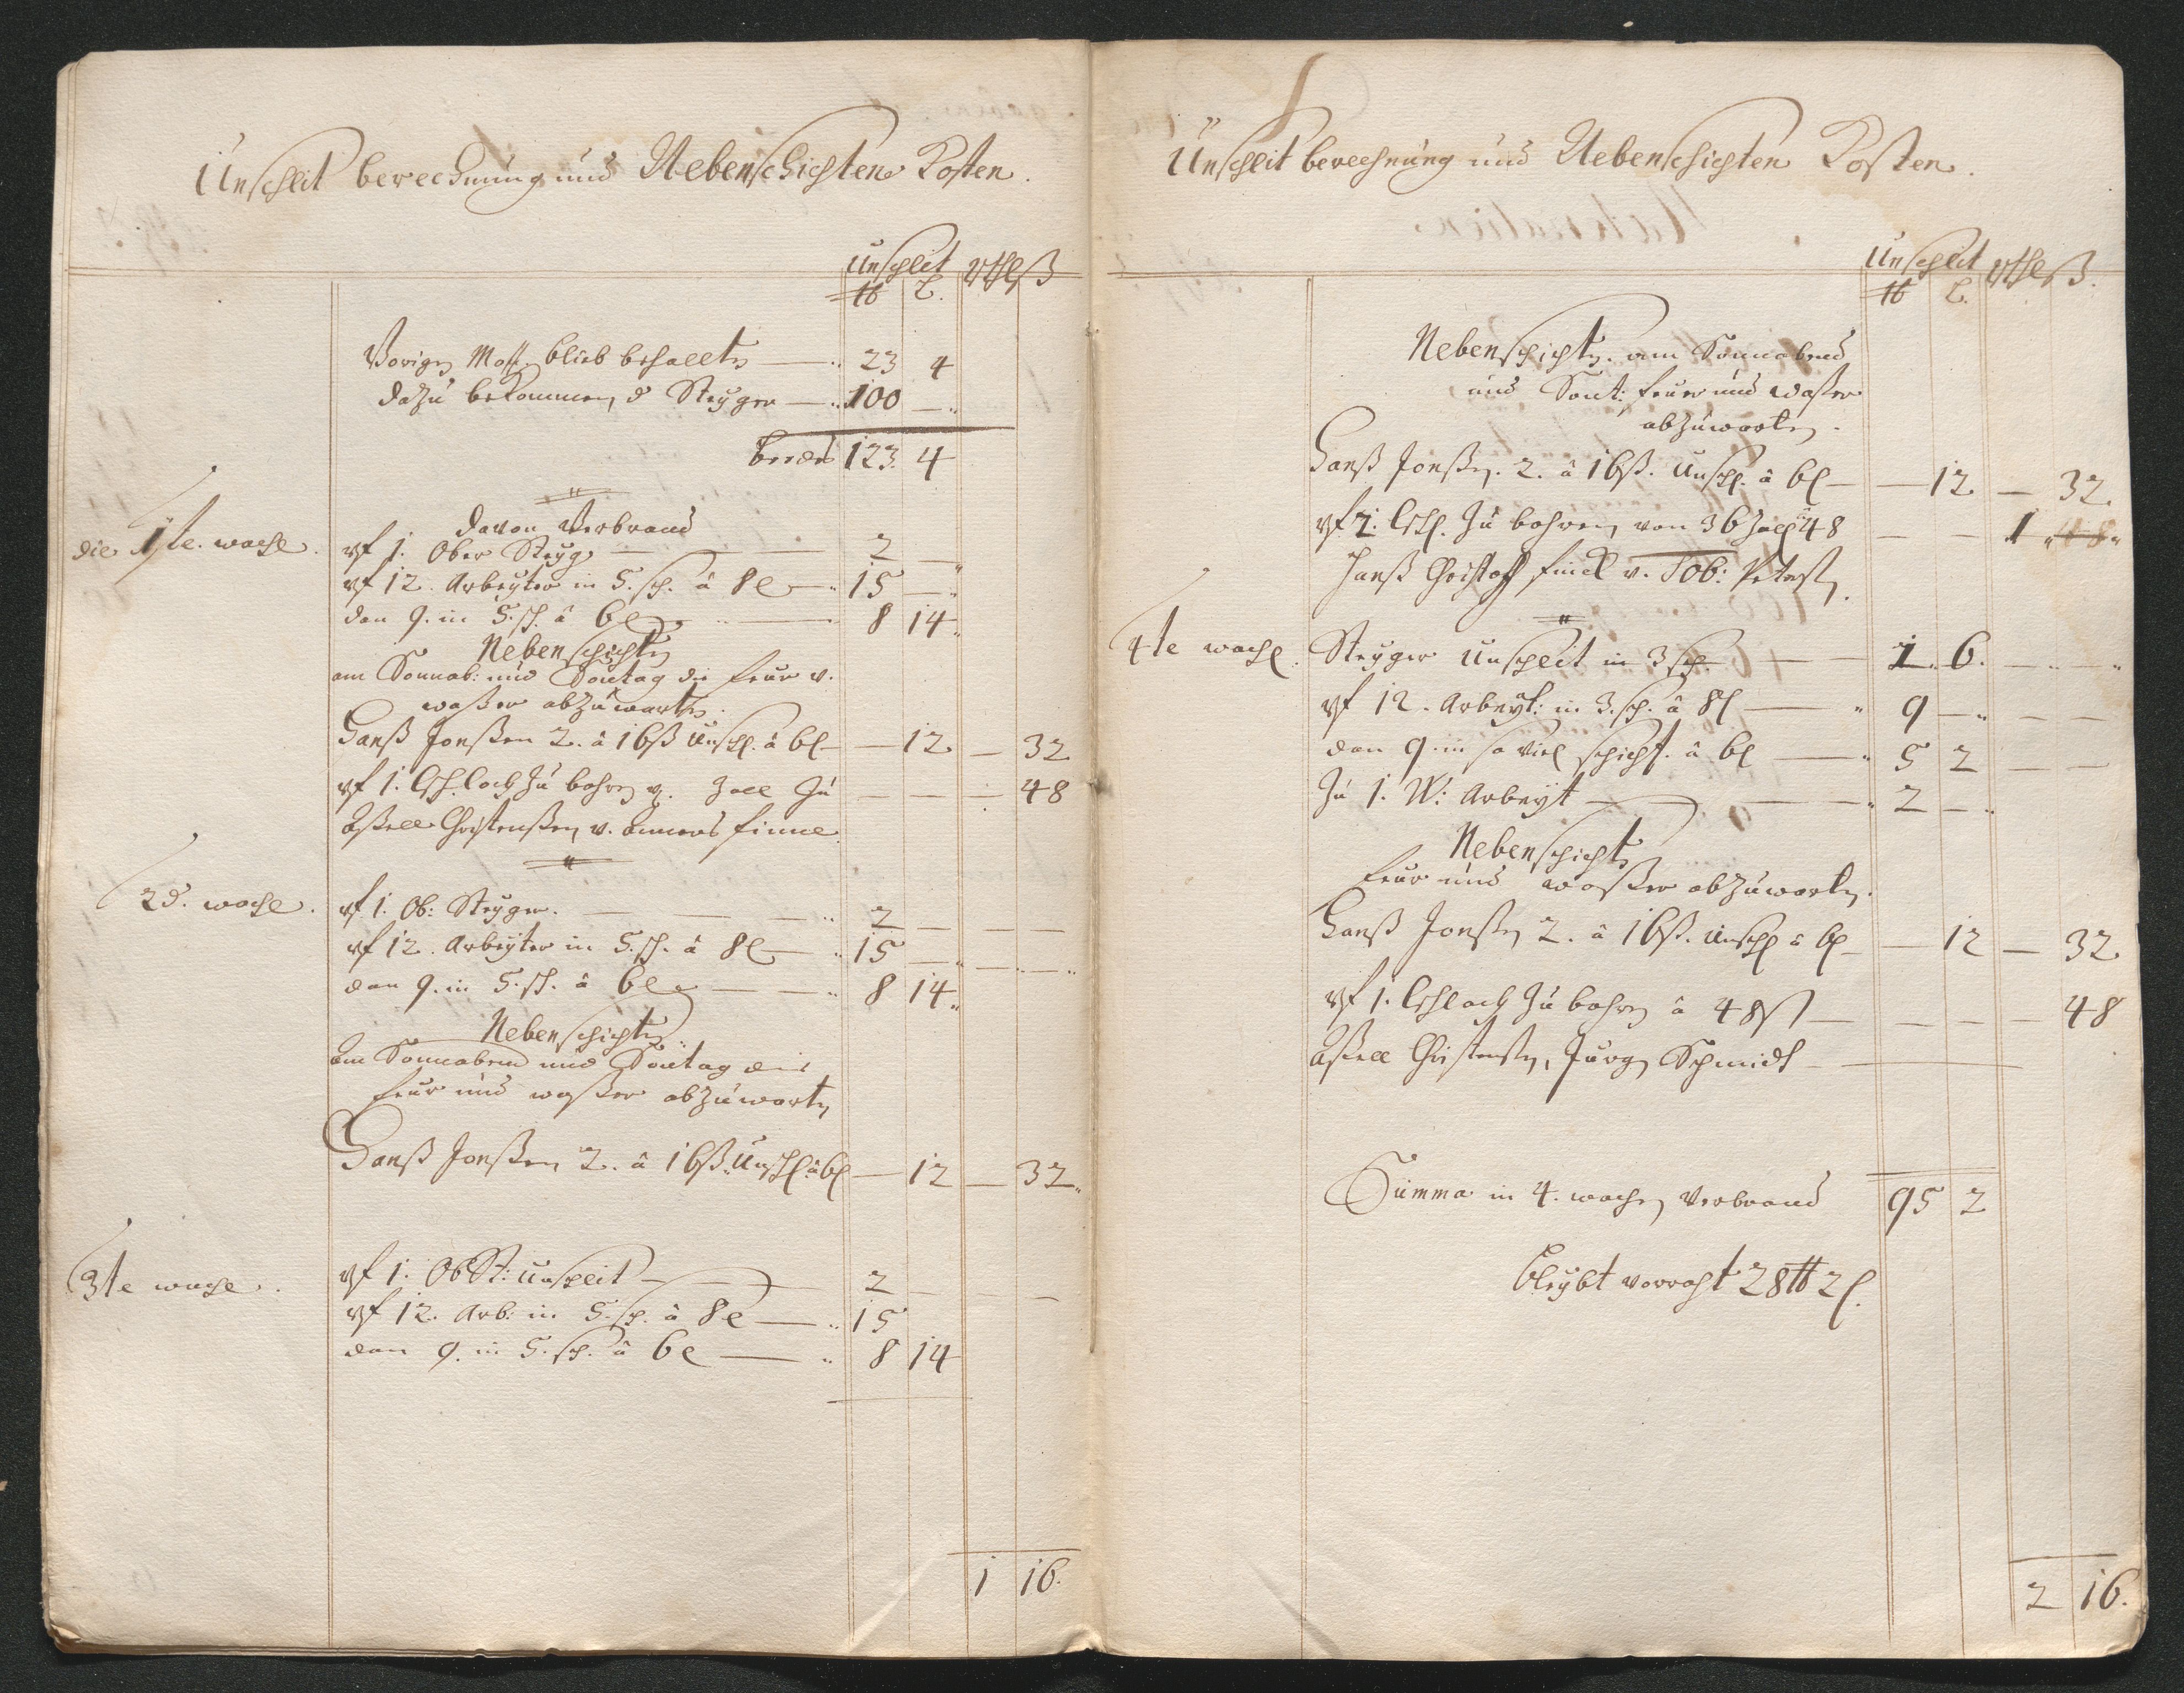 Unschlit berechnung und Nebenschichten Kosten.
Unschlit Rthl ß
℔ L.
Vorigen Mott blieb behallten 23 4
dazu bekommen d Steyger 100 —
beede 123. 4
Davon Verbrand
die 1ste. woche. vf 1. Ober Steyg. 2 —
vf 12. Arbeyter in 5. sch. â 8 l 15 —
dan 9. in 5. sch. â 6 l 8 14
Nebenschichten
am Sonnab: und Sontag die feur v.
waßer abzuwarten.
Hanß Jonßen 2. â 16 ß Unschl. â 6 l — 12 — 32
vf 1. loch zu bohren v. Zoll zu — — — 48
Aßell Christenßen v. finne
2d. woche. vf 1. Ob: Steyger. 2 — — —
vf 12. Arbeyter in 5. sch. â 8 l 15 — — —
dan 9. in 5. sch. â 6 l 8 14
Nebenschichten
am Sonnabend und Sontag die
feur und waßer abzuwarten
Hanß Jonßen 2. â 16 ß. Unschl â 6 l — 12 — 32
3te woche. vf 1. Ob St: unschlit 2 — — —
vf 12. Arb: in 5. sch. â 8 l 15
dan 9. in 5. sch. â 6 l 8 14
1 16.
Unschlit berechnung und Nebenschichten Kosten.
Unschlit Rthl ß.
℔ L.
Nebenschichten. am Sonnabend
und Sont: feuer und waßer
abzuwarten.
Hanß Jonßen. 2. â 16 ß. Unschl. â 6 l — 12 — 32
vf 2. zu bohren von 36 Zoll â 48 — — 1
Hanß Christoff finck v. Tob: Peterßen.
4te woche. Steyger Unschlit in 3 sch. 1. 6. — —
vf 12. Arbeyt: in 3. sch. â 8 l 9 — — —
dan 9. in so viel schicht. â 6 l 5 2 — —
Zu 1. W: Arbeyt 2 —
Nebenschichten
feur und waßer abzuwarten.
Hanß Jonßen 2. â 16 ß. Unschl â 6 l — 12 — 32
vf 1. loch zu bohren â 48 ß — — — 48
Aßell Christenßen, Jürgen Schmidt
Summa in 4. wochen Verbrand 95 2
bleybt vorraht 28 ℔ 2 l.
2 16.